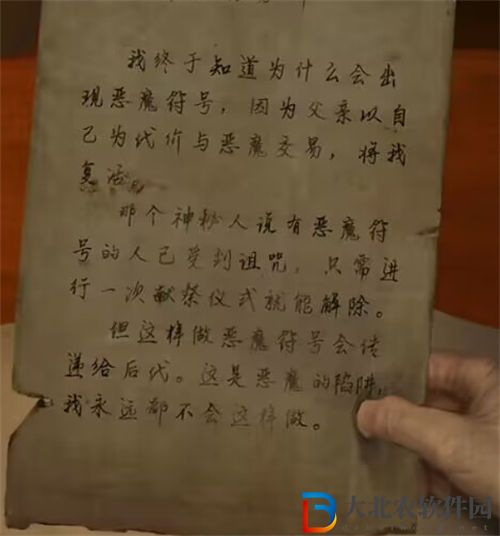 我终于知道为什么会出
现恶魔符号，因为父亲以自
己为代价与恶魔交易，将我
复活。
那个神秘人说有恶魔符
号的人已受到诅咒，只需进
行一次献祭仪式就能解除。
但这样做恶魔符号会传
递给后代。这是恶魔的陷阱，
我永远都不会这样做。
大北农软件园